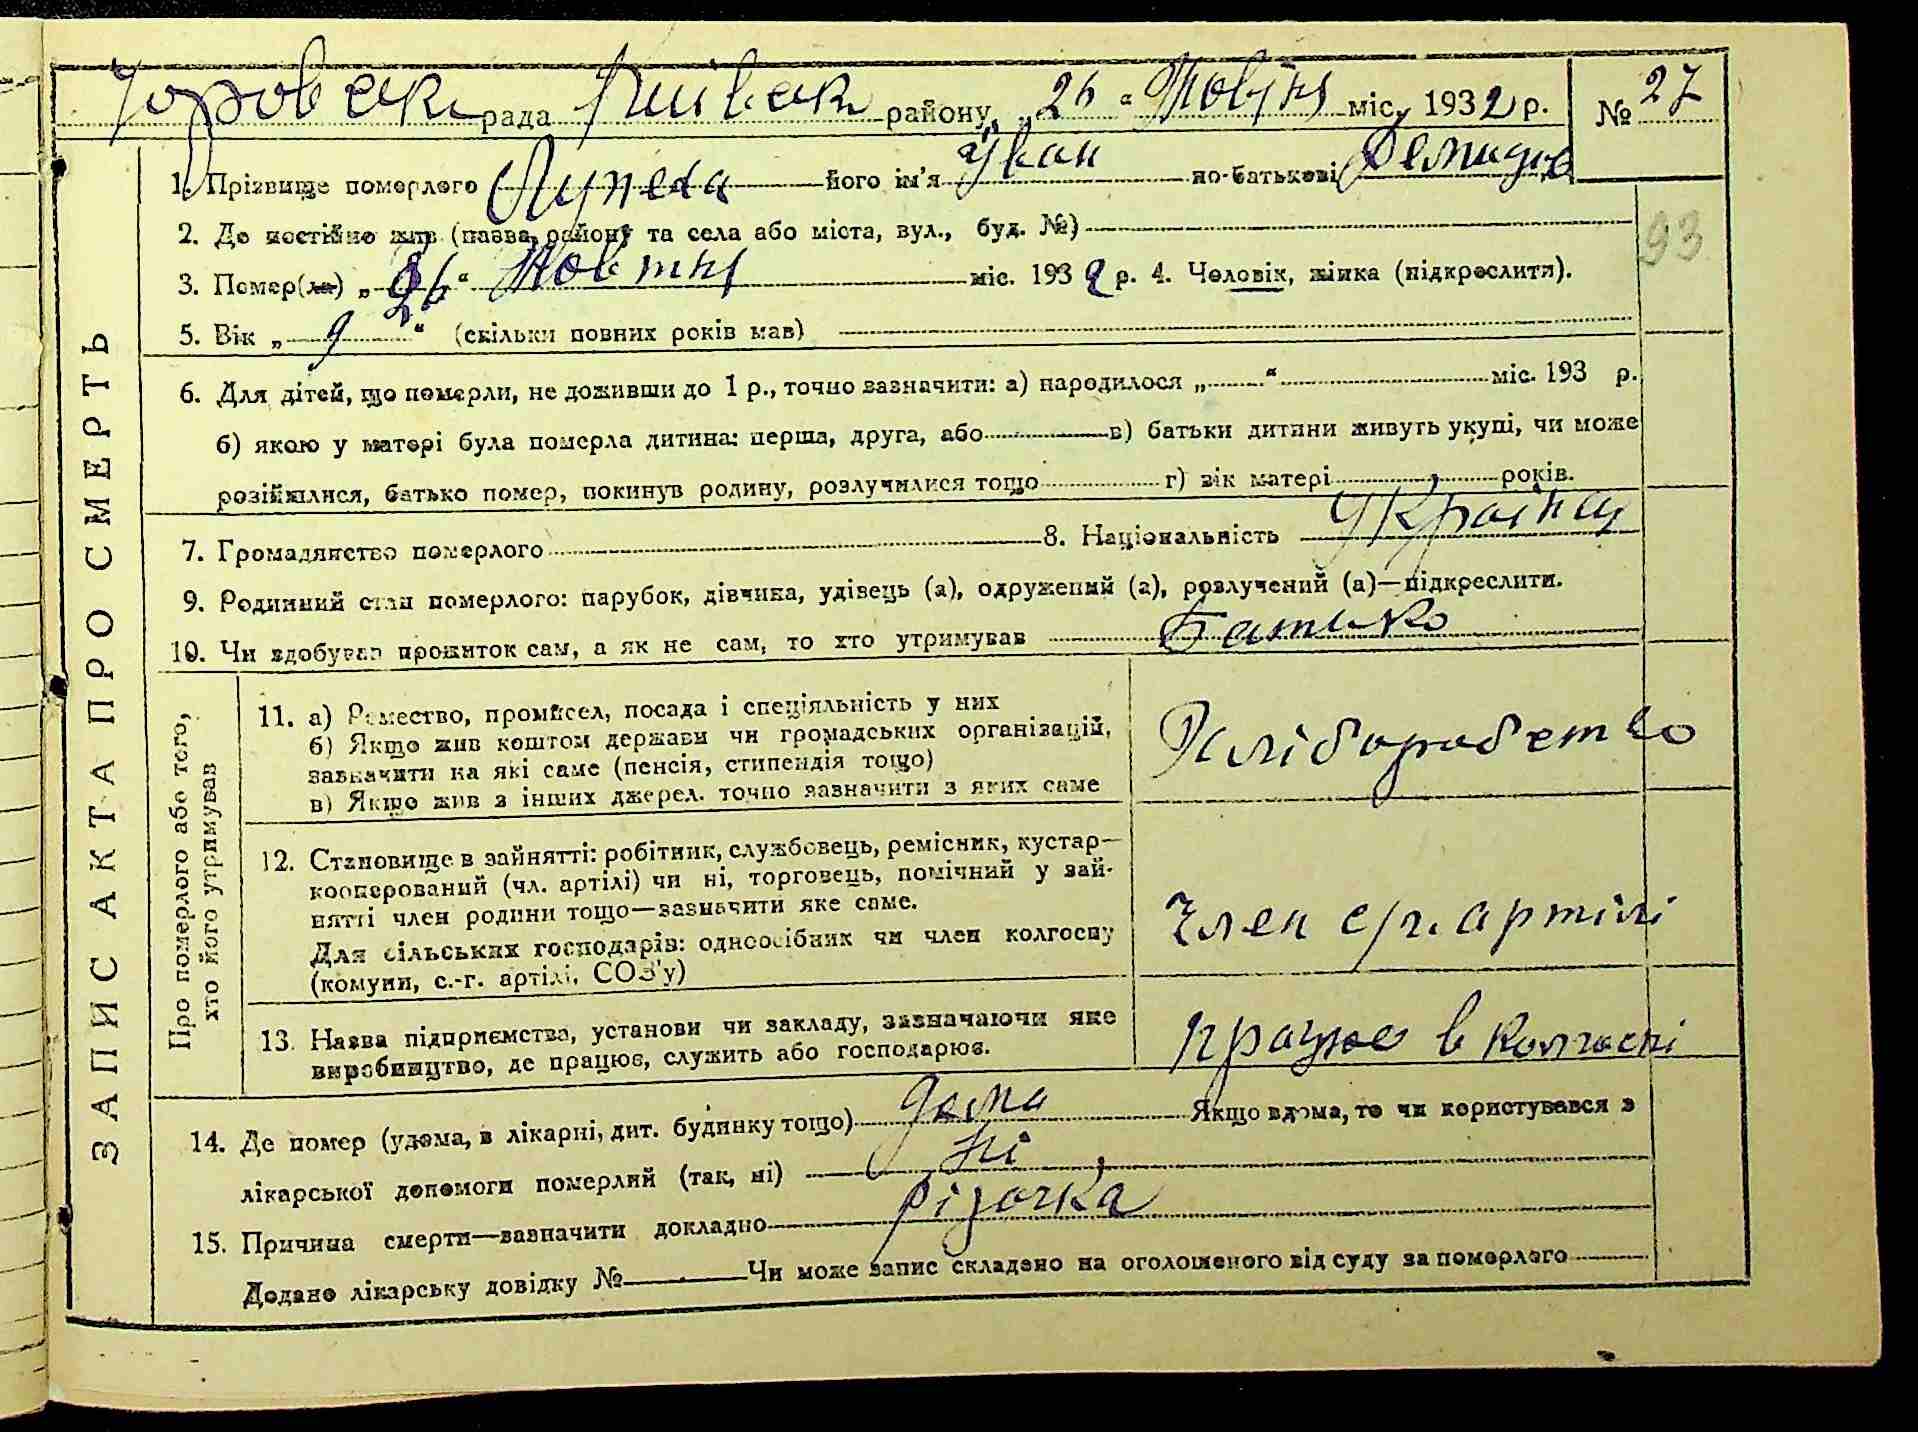 рада район, „26“ Жовтня міс. 1932 р. № 27
1. Прізвище померлого його ім'я Іван по-батькові Демидов
93
2. Де постійно жив (назва району та села або міста, вул., буд. №)
3. Помер(ла) „26“ Жовтня міс. 1932 р. 4. Чоловік, жінка (підкреслити).
5. Вік „9“ (скільки повних років мав)
6. Для дітей, що померли, не доживши до 1 р., точно зазначити: а) народилося „ “ міс. 193 р.
б) якою у матері була померла дитина: перша, друга, або в) батьки дитини живуть укупі, чи може
розійшлися, батько помер, покинув родину, розлучилися тощо г) вік матері років.
7. Громадянство померлого 8. Національність
9. Родинний стан померлого: парубок, дівчина, удівець (а), одружений (а), розлучений (а)—підкреслити.
10. Чи здобував прожиток сам, а як не сам, то хто утримував Батько
ЗАПИС АКТА ПРО СМЕРТЬ
Про померлого або того,
хто його утримував
11. а) Ремество, промисел, посада і спеціяльність у них
б) Якщо жив коштом держави чи громадських організацій,
зазначити на які саме (пенсія, стипендія тощо)
в) Якщо жив з інших джерел, точно зазначити з яких саме
Хліборобство
12. Становище в зайнятті: робітник, службовець, ремісник, кустар—
кооперований (чл. артілі) чи ні, торговець, помічний у зай-
нятті член родини тощо—зазначити яке саме.
Для сільських господарів: одноосібник чи член колгоспу
(комуни, с.-г. артілі, СОЗ'у)
Член с/г. артілі
13. Назва підприємства, установи чи закладу, зазначаючи яке
виробництво, де працює, служить або господарює.
працює в колгоспі
14. Де помер (удома, в лікарні, дит. будинку тощо) дома Якщо вдома, то чи користувався з
лікарської допомоги померлий (так, ні) Ні
15. Причина смерти—зазначити докладно різачка
Додано лікарську довідку № Чи може запис складено на оголошеного від суду за померлого